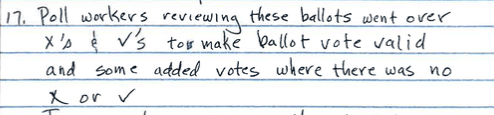 17. Poll workers reviewing these ballots went over
X's & √'s to make ballot vote valid
and some added votes where there was no
X or √